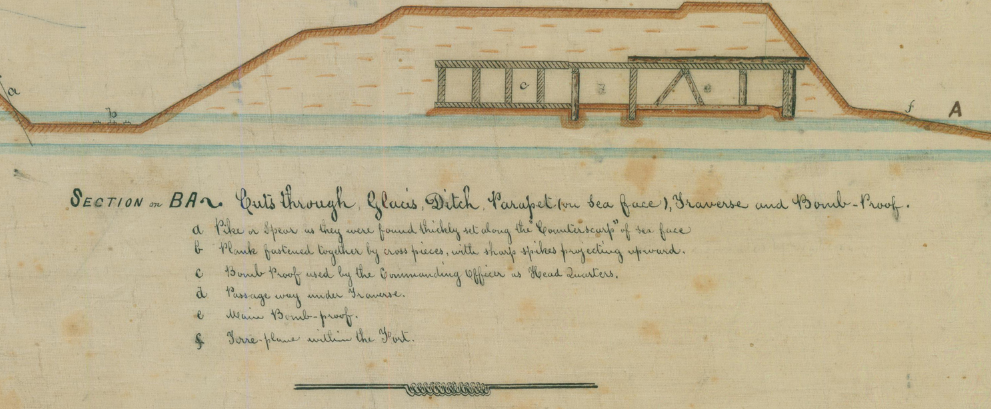 a
b
c
e
f
A
SECTION on BA Cuts through, Glacis, Ditch, Parapet (on Sea face), Traverse and Bomb-Proof.
a Pike or Spear as they were found thickly set along the "Counterscarp" of sea face
b Plank fastened together by cross pieces, with sharp spikes projecting upward.
c Bomb Proof used by the Commanding Officer as Head Quarters.
d Passage way under Traverse.
e Main Bomb-proof.
f Terre-plane within the Fort.